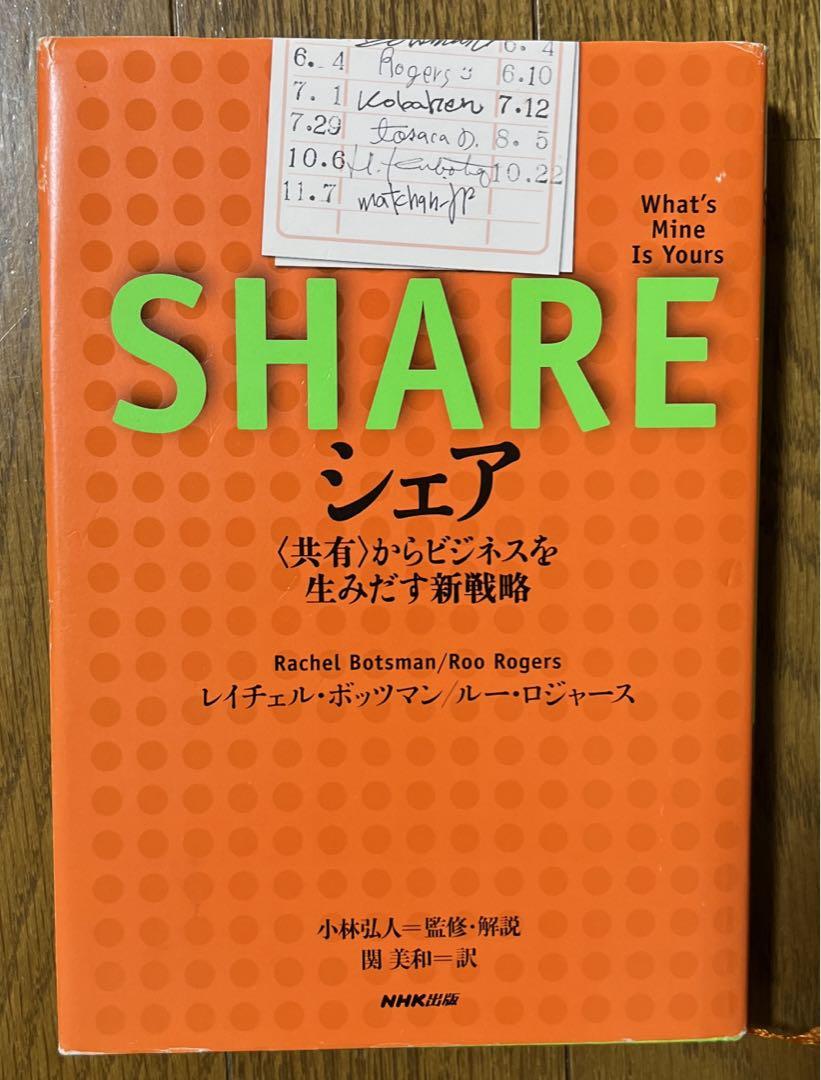 6. 4
6. 4 Rogers 6.10
7. 1 Kobahen 7.12
7.29 tosaca 8. 5
10.6 10.22
11.7 matchan-jp
What's
Mine
Is Yours
SHARE
シェア
〈共有〉からビジネスを
生みだす新戦略
Rachel Botsman/Roo Rogers
レイチェル・ボッツマン/ルー・ロジャース
小林弘人=監修・解説
関 美和=訳
NHK出版